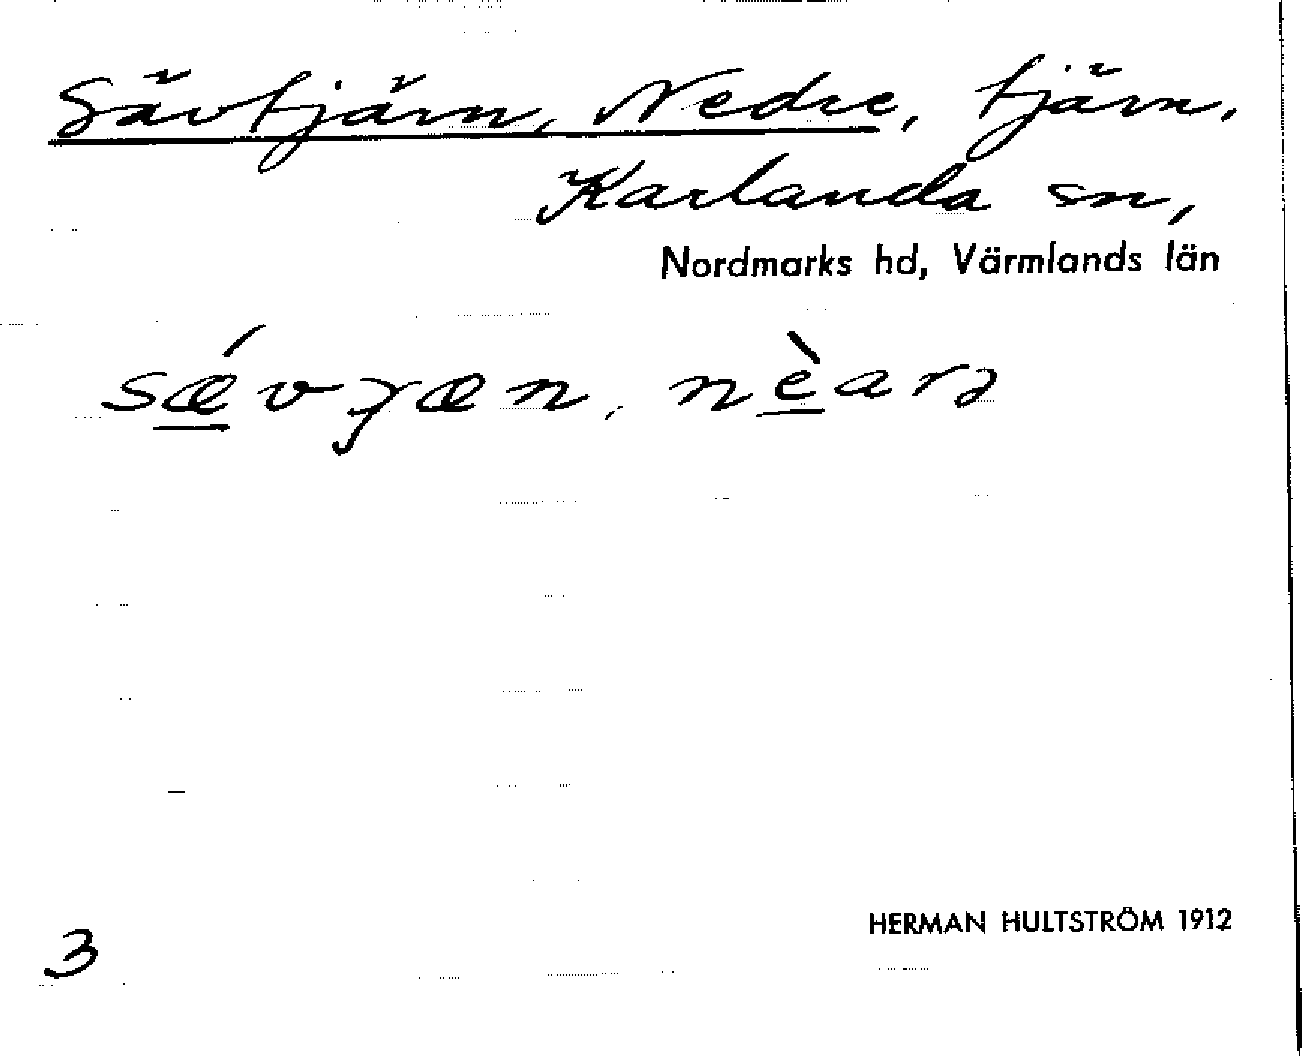 Sävtjärn, Nedre, tjärn.
Karlanda sn,
Nordmarks hd, Värmlands län
sǽvɟæn, nèarə
HERMAN HULTSTRÖM 1912
3